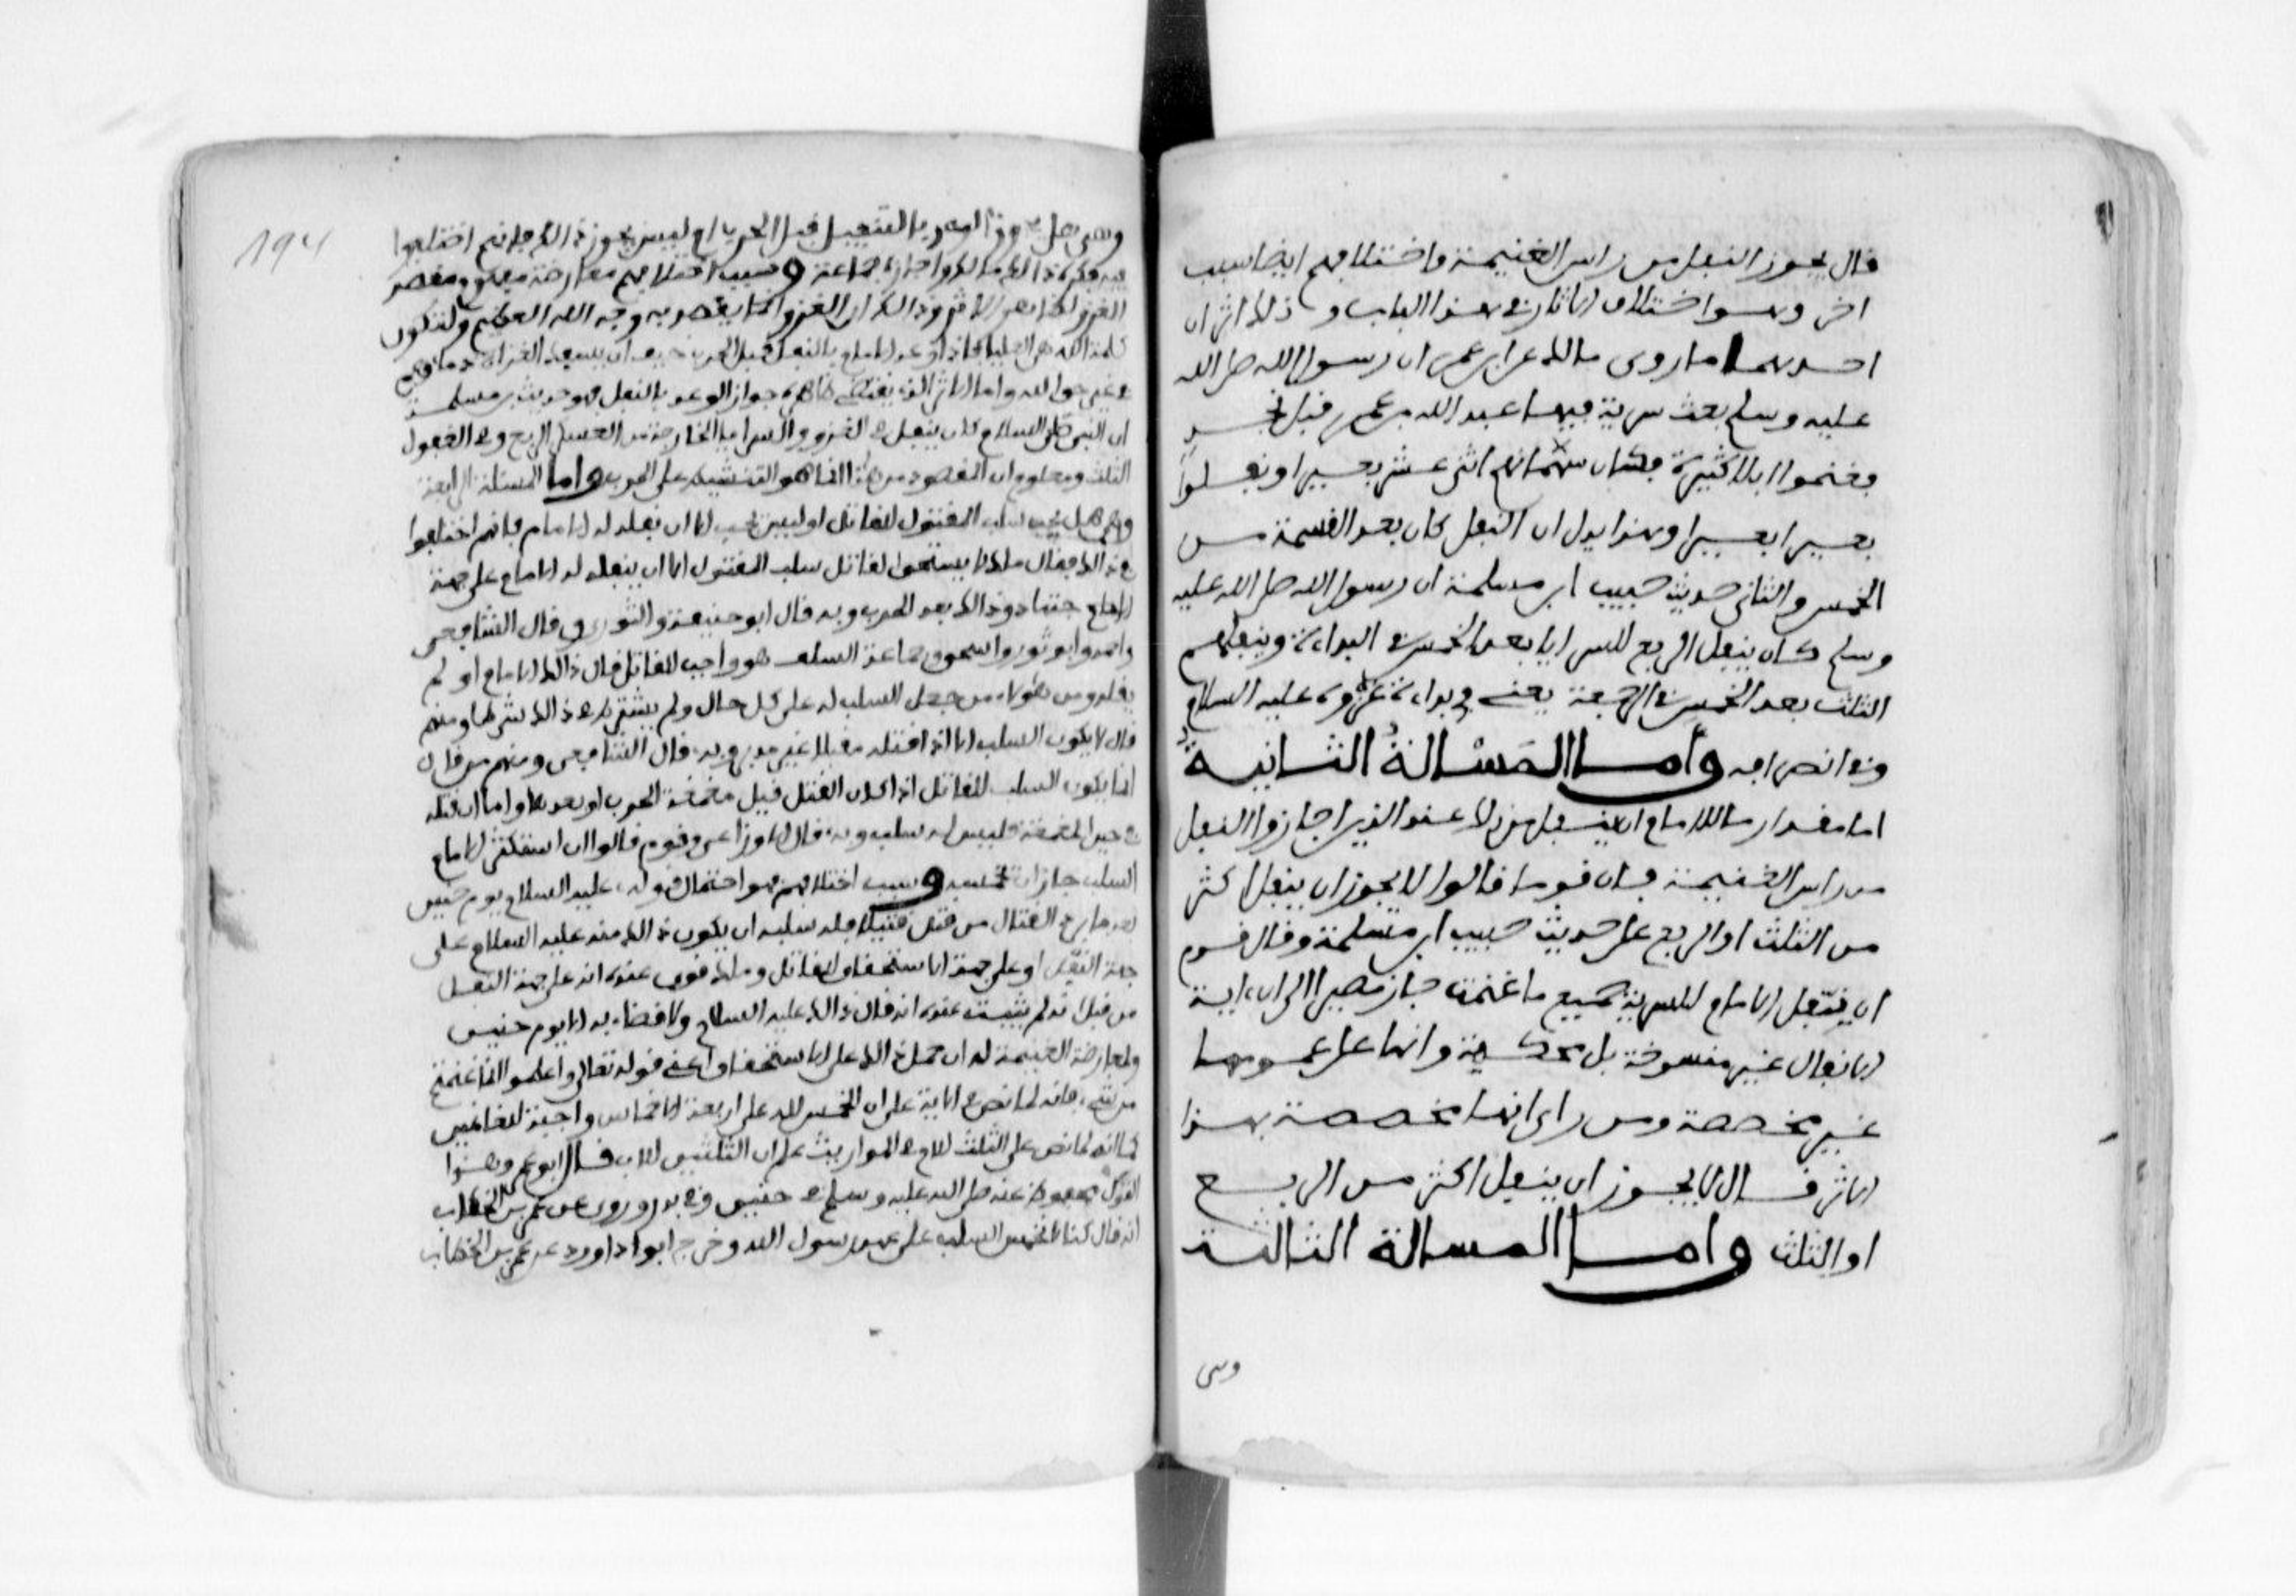 قال يجوز النفل من راس الغنيمة واختلافهم ايضا سبب
اخر وهو اختلاف الاثار في هذا الباب و ذلك اثران
احدهما ما روى مالك عن ابن عمر ان رسول الله صلى الله
عليه وسلم بعث سرية فيها عبد الله بن عمر قبل نجد
فغنموا ابلا كثيرة فكان سهمانهم اثنى عشر بعيرا ونفلوا
بعيرا بعيرا وهذا يدل ان النفل كان بعد القسمة من
الخمس والثانى حديث حبيب ابن مسلمة ان رسول الله صلى الله عليه
وسلم كان ينفل الربع للسرايا بعد الخمس في البداءة وينفلهم
الثلث بعد الخمس في الرجعة يعنى في بداءة غزوه عليه السلام
وفي انصرافه وأما المَسْالة الثانية
اما مقدار ما للامام ان ينفل من ذلك عند الذين اجازوا النفل
من راس الغنيمة فان قوما قالوا لا يجوز ان ينفل اكثر
من الثلث او الربع على حديث حبيب ابن مسلمة وقال قوم
ان ينفل الامام للسرية جميع ما غنمت جاز مصيرا الى ان اية
الانفال غير منسوخة بل محكمة وانها على عمومها
غير مخصصة ومن راى انها مخصصة بهذا
الاثر قال لا يجوز ان ينفل اكثر من الربع
او الثلث واما المسالة الثالثة
وهى
194
وهى هل يجوز الوعد بالتنفيل قبل الحرب ام ليس يجوز ذالك فانهم اختلفوا
فيه فكره ذالك مالك واجازه جماعة وسبب اختلافهم معارضة مفهوم مقصد
الغزو لظاهر الاثر وذالك ان الغزو انما يقصد به وجه الله العظيم ولتكون
كلمة الله هى العليا فاذا وعد الامام بالنفل قبل الحرب خيف ان يسفك الغزاة دماءهم
في غير حق الله واما الاثر الذي يقتضى ظاهره جواز الوعد بالنفل فهو حديث بن مسلمة
ان النبى عليه السلام كان ينفل في الغزو والسرايا الخارجة من العسكر الربع وفي القفول
الثلث ومعلوم ان المقصود من هذا انما هو التنشيط على الحرب واما المسئلة الرابعة
وهى هل يجب سلب المقتول للقاتل او ليس يجب الا ان نفله له الامام فانهم اختلفوا
في ذالك فقال مالك لا يستحق القاتل سلب المقتول الا ان ينفله له الامام على جهة
الاجتهاد وذالك بعد الحرب وبه قال ابو حنيفة والثوري وقال الشافعى
واحمد وابو ثور واسحق وجماعة السلف هو واجب للقاتل قال ذالك الامام او لم
يقله ومن هؤلاء من جعل السلب له على كل حال ولم يشترط في ذالك شرطا ومنهم
قال لا يكون السلب الا اذا قتله مقبلا غير مدبر وبه قال الشافعى ومنهم من قال
انما يكون السلب للقاتل اذا كان القتل قبل معمعة الحرب او بعدها واما ان قتله
في حين المعمعة فليس له سلب وبه قال الاوزاعى وقوم قالوا ان استكثر الامام
السلب جاز ان يخمسه وسبب اختلافهم هو احتمال قوله عليه السلام يوم حنين
بعد ما برد القتال من قتل قتيلا فله سلبه ان يكون ذالك منه عليه السلام على
جهة النفل او على جهة الاستحقاق للقاتل ومالك قوى عنده انه على جهة النفل
من قبل انه لم يثبت عنده انه قال ذالك عليه السلام ولا قضاء به الا يوم حنين
ولمعارضة الغنيمة له ان حمل ذالك على الاستحقاق اعنى قوله تعالى واعلموا انما غنمتم
من شىء فانه لما نص في الاية على ان الخمس لله علم ان اربعة الاخماس واجبة للغانمين
كما انه لما نص على الثلث للام في المواريث علم ان الثلثين للاب قال ابو عمر وهذا
القول محفوظ عنه صلى الله عليه وسلم في حنين وفي بدر وروى عن عمر بن الخطاب
انه قال كنا لا نخمس السلب على عهد رسول الله وخرج ابوا داوود عن عمر بن الخطاب